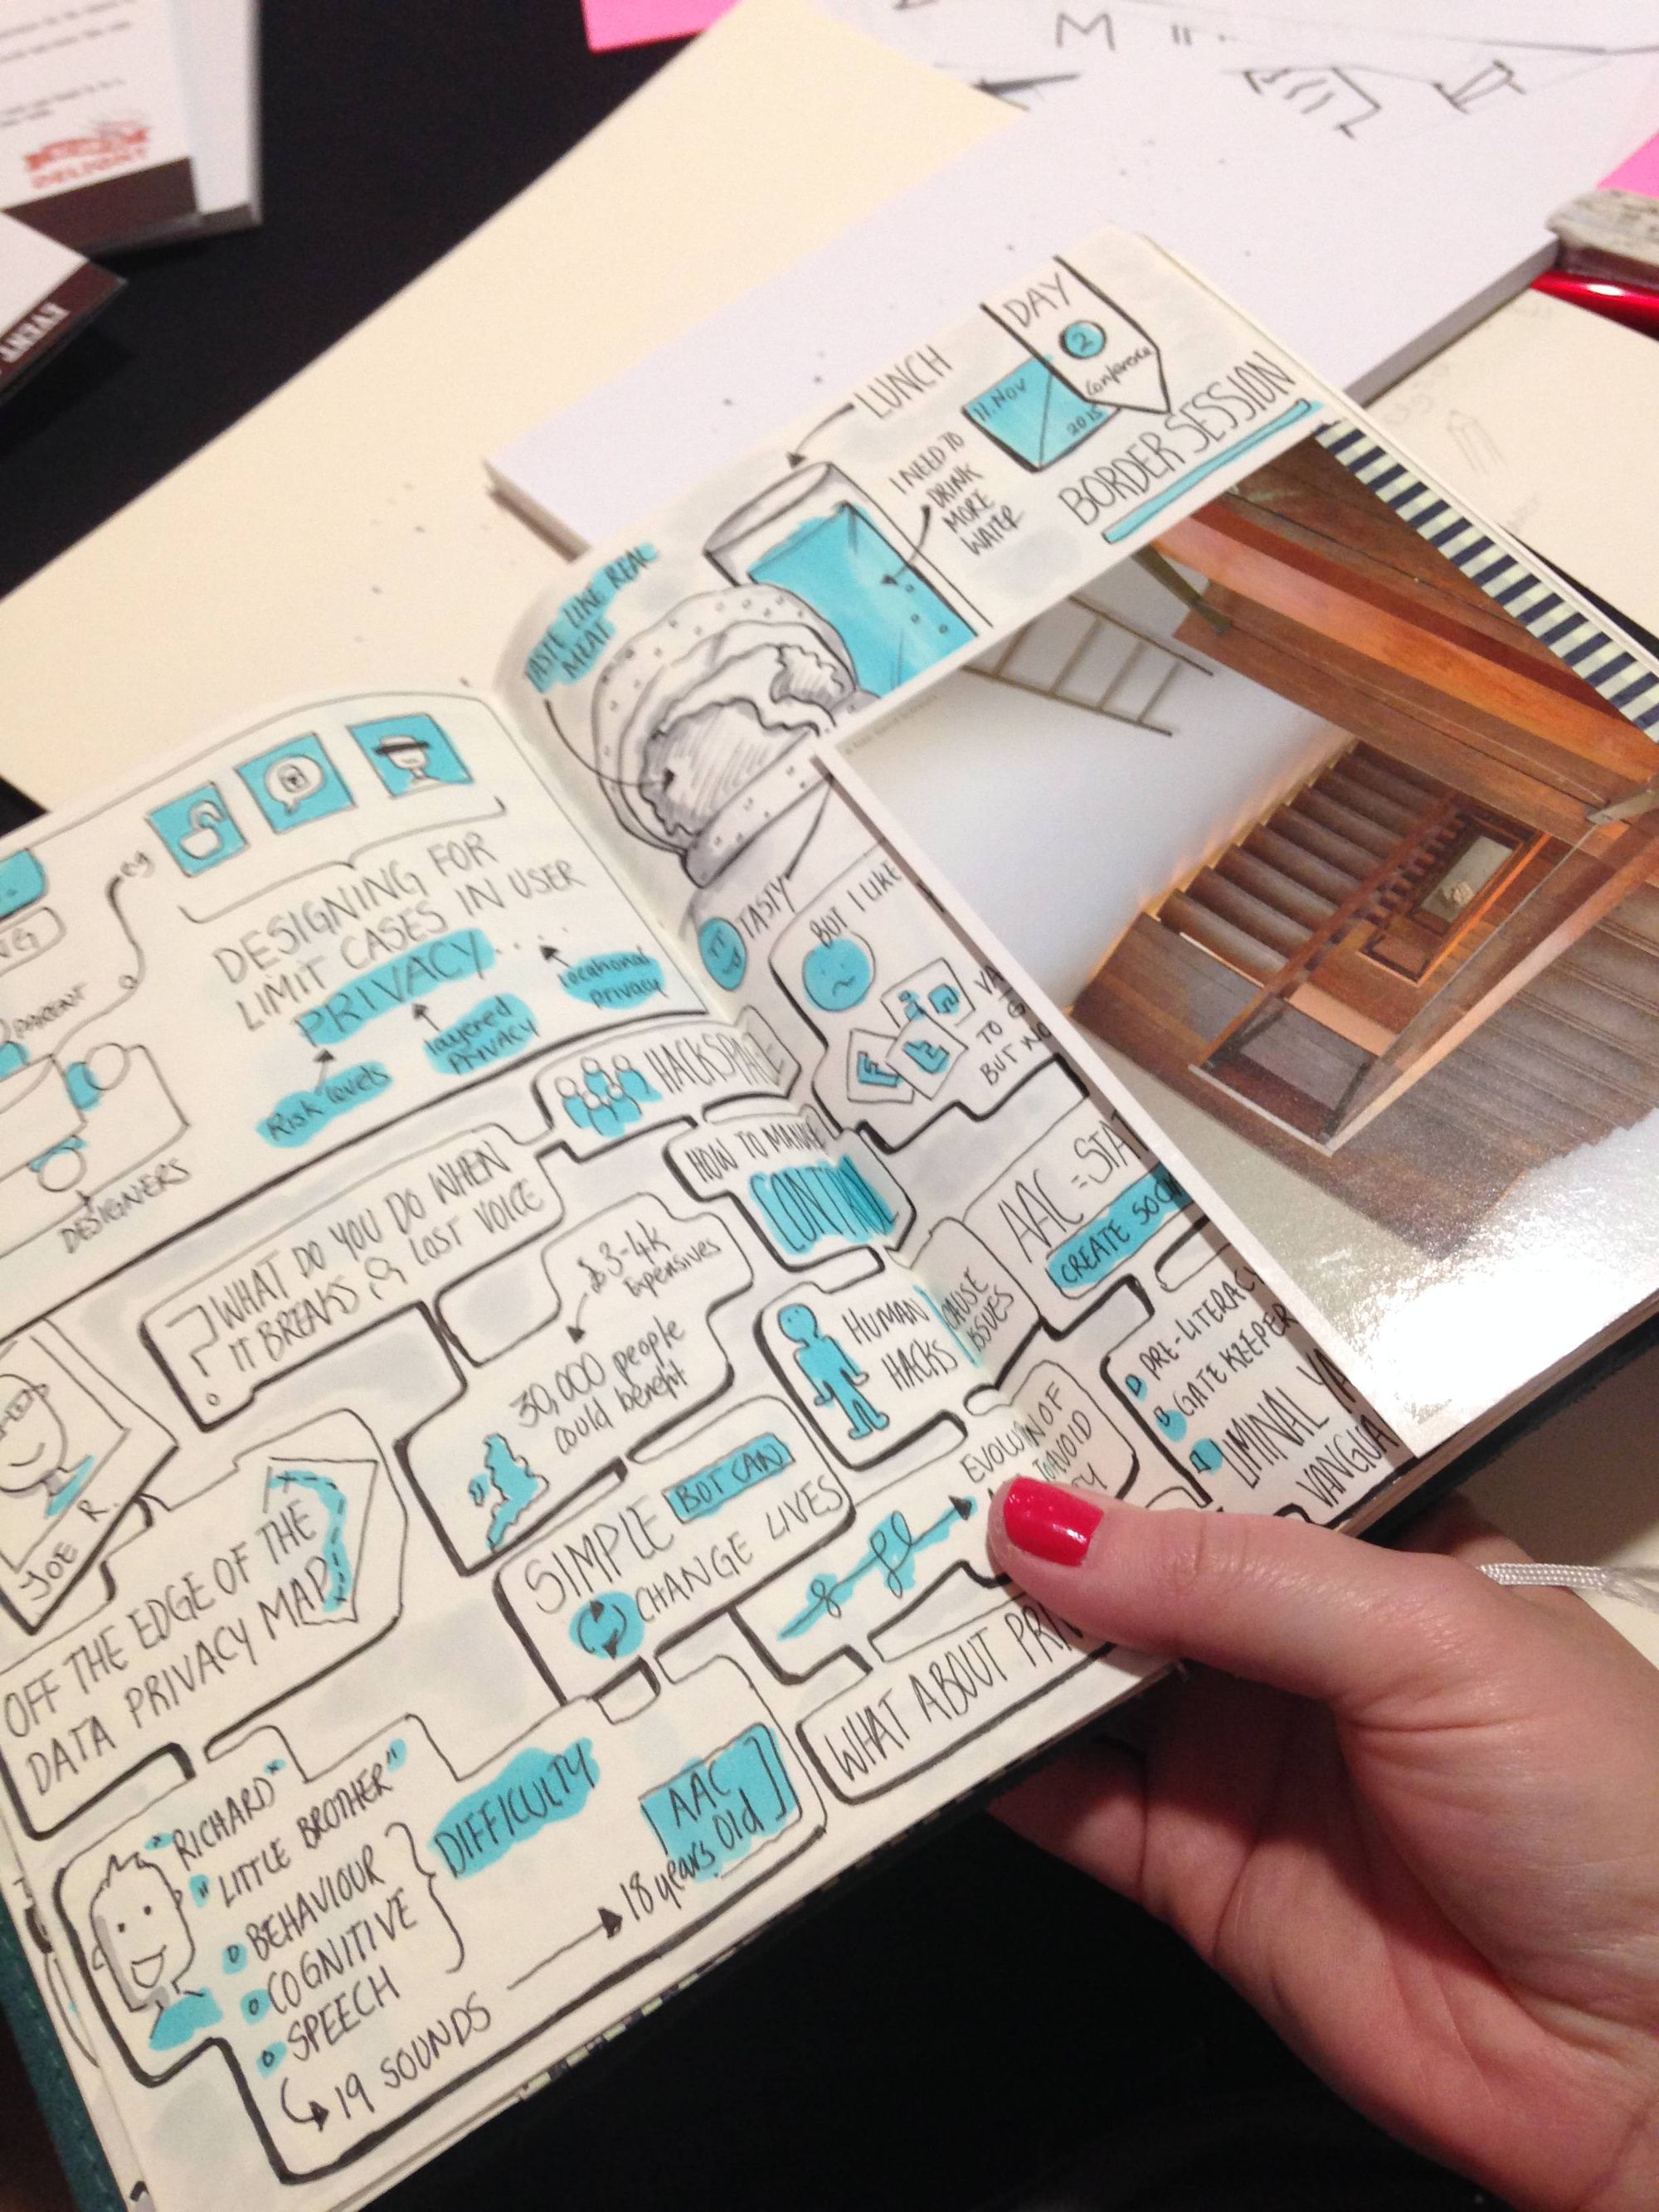 DELIGHT
EVENT
DESIGNING FOR
LIMIT CASES IN USER
PRIVACY....
Locational
privacy
layered
privacy
Risk levels
eg
PARENT
DESIGNERS
HACKSPACE
? WHAT DO YOU DO WHEN
IT BREAKS & LOST VOICE
$3-4k
Expensives
30,000 people
could benefit
JOE R.
OFF THE EDGE OF THE
DATA PRIVACY MAP
SIMPLE BOT CAN
CHANGE LIVES
"RICHARD"
"LITTLE BROTHER"
BEHAVIOUR
COGNITIVE
SPEECH
DIFFICULTY
19 SOUNDS
18 years Old
AAC
DAY
2
Conference
11. Nov
2015
BORDER SESSION
LUNCH
I NEED TO
DRINK
MORE
WATER
TASTE LIKE REAL
MEAT
TASTY
BUT I LIKE
TO
BUT NO
HOW TO
CONTROL
HUMAN
HACKS
CAUSE
ISSUES
AAC =
CREATE
PRE-LITERACY
GATE KEEPER
LIMINAL
EVOLUTION OF
TO AVOID
WHAT ABOUT